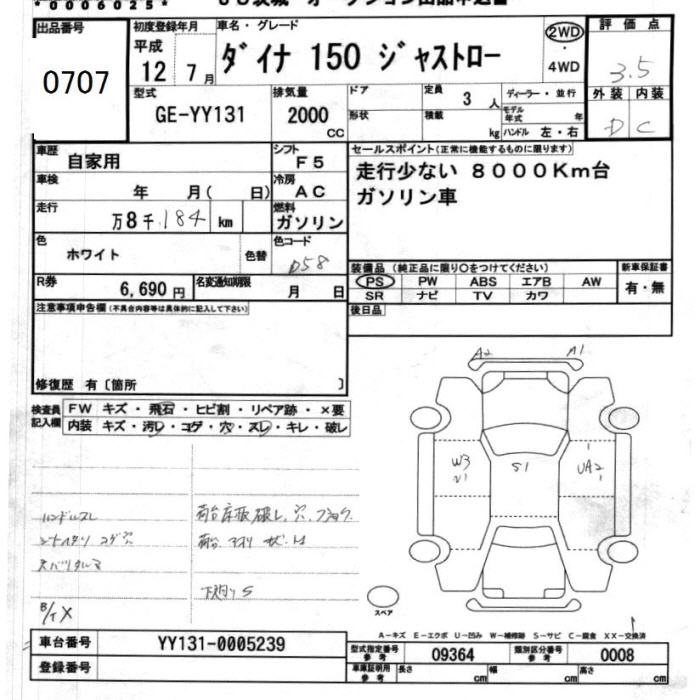 *0006025*
出品番号
0707
初度登録年月
平成
12 7月
車名・グレード
ダイナ 150 ジャストロー
2WD
・
4WD
評価点
3.5
外装 内装
D C
型式
GE-YY131
排気量
2000
CC
ドア
形状
定員
3 人
積載
kg
ディーラー・並行
モデル年式 年
ハンドル 左・右
車歴
自家用
シフト
F5
車検
年 月( 日)
冷房
AC
走行
万8千 184 km
燃料
ガソリン
色
ホワイト
色替
色コード
058
R券
6,690 円
名変通知期限
月 日
セールスポイント(正常に機能するものに限ります)
走行少ない 8000Km台
ガソリン車
装備品(純正品に限り○をつけてください)
PS PW ABS エアB AW
SR ナビ TV カワ
新車保証書
有・無
後日品
注意事項申告欄(不具合内容等は具体的に記入して下さい)
修復歴 有〔箇所 〕
検査員
記入欄
FW キズ・飛石・ヒビ割・リペア跡・×要
内装 キズ・汚レ・コゲ・穴・スレ・キレ・破レ
A2 A1
W3
S1
UA2
1
ハンドルスレ
荷台床板破レ、穴
荷台 アオリ
下廻り S
スペア
A-キズ E-エクボ U-凹み W-補修跡 S-サビ C-腐食 XX-交換済
車台番号
YY131-0005239
登録番号
型式指定番号
参考
09364
類別区分番号
参考
0008
車庫証明用
参考
長さ cm
幅 cm
高さ cm